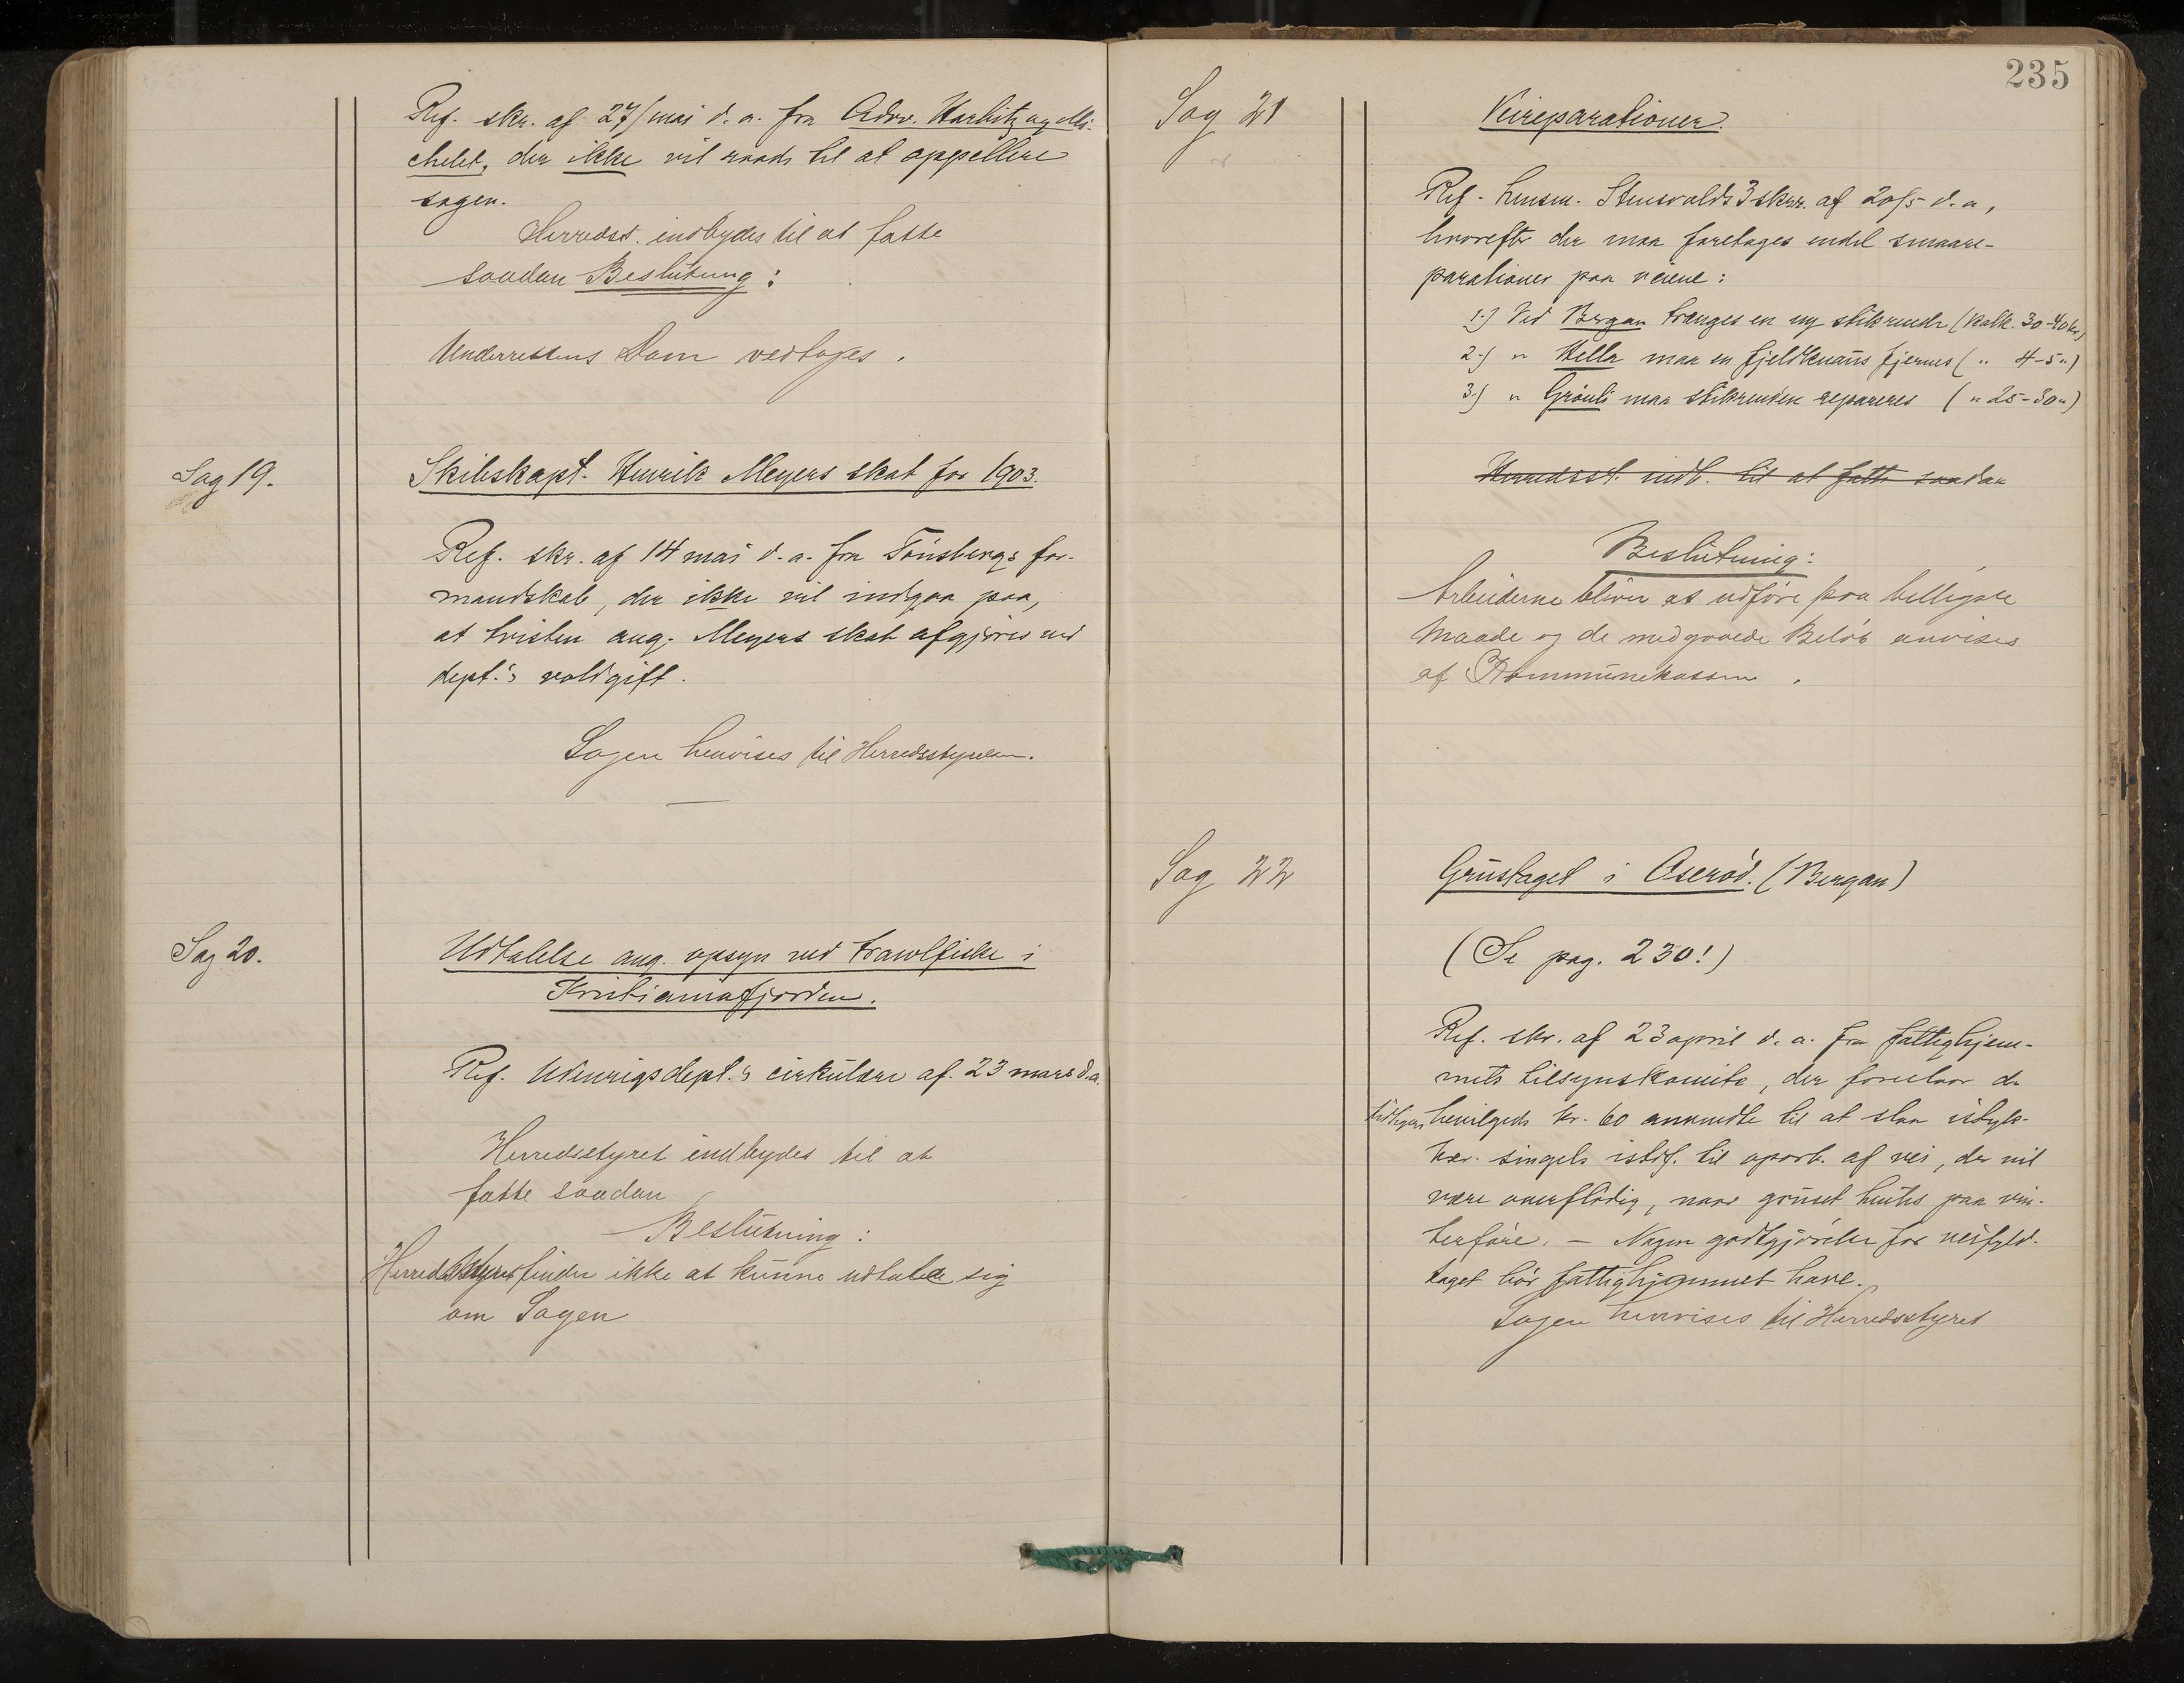 Ref. skr. af 27/mai d. a. fra Adv. Harbitz og Mi-
chelet, der ikke vil raade til at appellere
sagen.
Herredsst. indbydes til at fatte
saadan Beslutning:
Underrettens Dom vedtages.
Sag 19.
Skibskapt. Henrik Meyers skat for 1903.
Ref. skr. af 14 mai d. a. fra Tønsbergs for-
mandskab, der ikke vil indgaa paa,
at tvisten ang. Meyers skat afgjøres ved
dept.'s voldgift.
Sagen henvises til Herredsstyrelsen.
Sag 20.
Udtalelse ang. opsyn ved trawlfiske i
Kristianiafjorden.
Ref. Udenrigsdept.'s cirkulære af 23 mars d.a.
Herredsstyret indbydes til at
fatte saadan
Beslutning:
Herredsstyret finder ikke at kunne udtale sig
om Sagen
235
Sag 21
Veireparationer.
Ref. lensm. Stensvolds 3 skrr. af 20/5 d. a,
hvorefter der maa foretages endel smaare-
parationer paa veiene:
1.) Ved Bergan trænges en ny stikrende (kalk. 30-40 kr)
2.) " Hella maa en fjeldknaus fjernes ( " 4-5 ")
3.) " Grønli maa stikrenden repareres ( " 25-30 ")
Herredsst. indb. til at fatte saadan
Beslutning:
Arbeiderne bliver at udføre paa billigste
Maade og de medgaaede Beløb anvises
af Kommunekassen.
Sag 22
Grustaget i Aserød. (Bergan)
(Se pag. 230!)
Ref. skr. af 23 april d. a. fra fattighjem-
mets tilsynskomite, der foreslaar de
tidligere bevilgede kr. 60 anvendte til at slaa istyk-
ker singels istdf. til oparb. af vei, der vil
være overflødig, naar gruset hentes paa vin-
terføre. — Nogen godtgjørelse for veifyld-
taget bør fattighjemmet have.
Sagen henvises til Herredsstyret